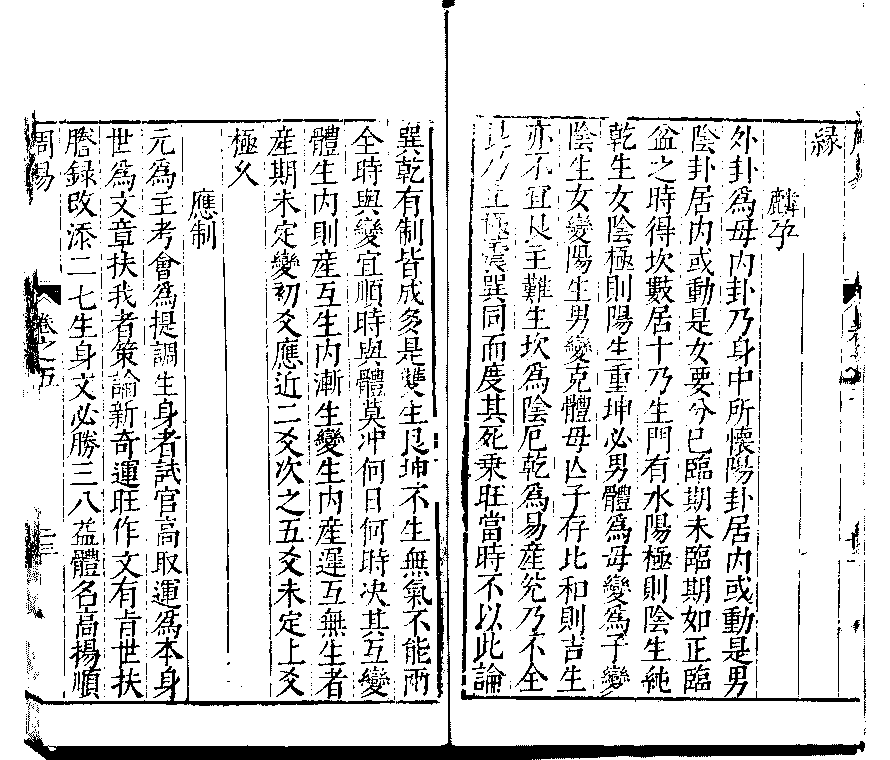 緣
麟孕
外卦為母内卦乃身中所懷陽卦居内或動是男
陰卦居内或動是女要分已臨期未臨期如正臨
盆之時得坎數居十乃生門有水陽極則陰生純
乾生女陰極則陽生重坤必男體為母變為子變
陰生女變陽生男變克體母亾子存比和則吉生
亦不宜艮主難生坎為陰厄乾為易產兊乃不全
此乃直震巽同而度其死乗旺當時不以此論
巽乾有制皆成多是雙生艮坤不生無氣不能兩
全時與變宜順時與體莫冲何日何時决其互變
體生内則産互生内漸生變生内産遲互無生者
産期未定變初爻應近二爻次之五爻未定上爻
極久
應制
元為主考會為提調生身者試官高取運為本身
世為文章扶我者策論新奇運旺作文有肯世扶
謄録改添二七生身文必勝三八益體名高揚順
周易
卷之五